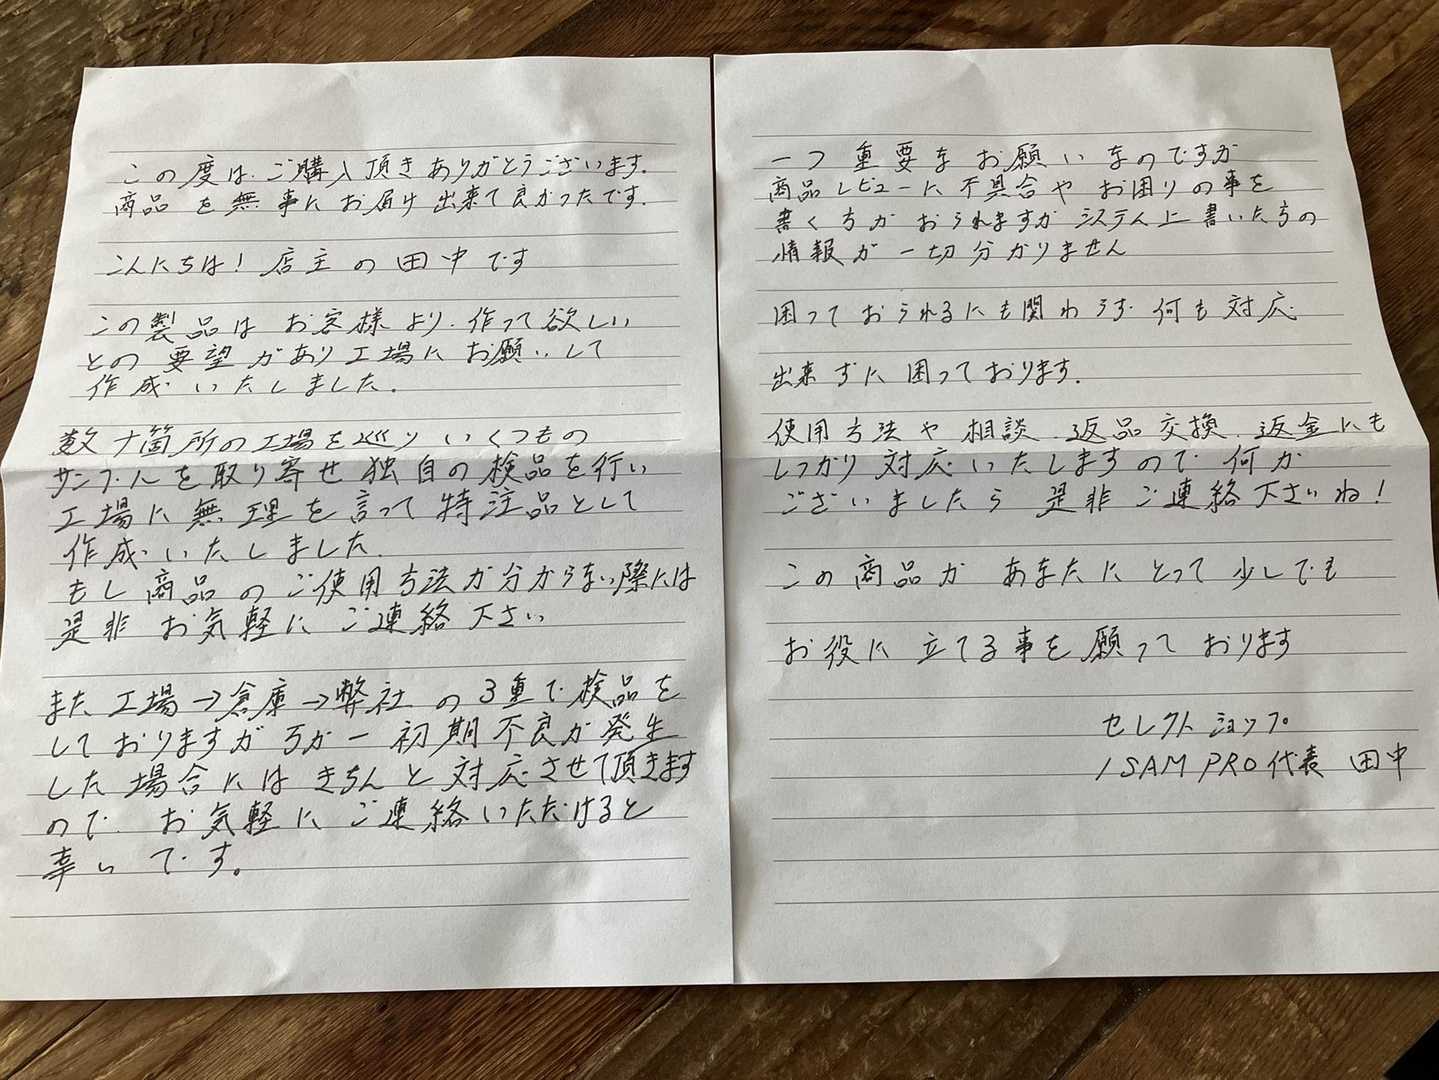 この度は、ご購入頂きありがとうございます.
商品を無事にお届け出来て良かったです.
こんにちは! 店主の田中です
この製品はお客様より、作って欲しい
との要望があり工場にお願いして
作成いたしました.
数十箇所の工場を巡り いくつもの
サンプルを取り寄せ独自の検品を行い
工場に無理を言って特注品として
作成いたしました.
もし商品のご使用方法が分からない際には
是非 お気軽にご連絡下さい
また工場→倉庫→弊社の3重で検品を
しておりますが万が一初期不良が発生
した場合にはきちんと対応させて頂きます
ので、お気軽にご連絡いただけると
幸いです。
一つ重要なお願いなのですが
商品レビューに不具合やお困りの事を
書く方がおられますがシステム上書いた方の
情報が一切分かりません
困っておられるにも関わらず何も対応
出来ずに困っております.
使用方法や相談、返品交換、返金にも
しっかり対応いたしますので何か
ございましたら是非ご連絡下さいね!
この商品があなたにとって少しでも
お役に立てる事を願っております
セレクトショップ
ISAM PRO代表 田中